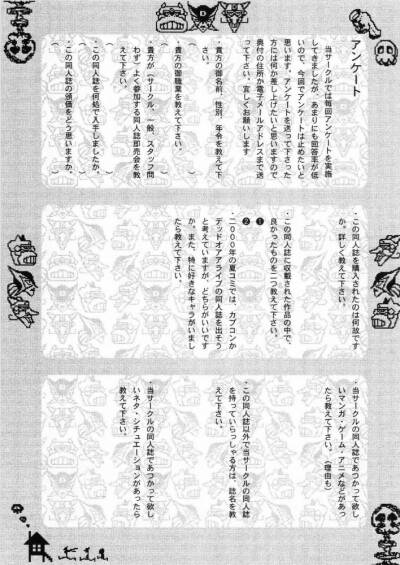 アンケート
当サークルでは毎回アンケートを実施
してきましたが、あまりにも回答率が低
いので、今回でアンケートは止めたいと
思います。アンケートを送って下さった
方には何か差し上げたいと思いますので
奥付の住所か電子メールアドレスまで送
って下さい。宜しくお願いします
・貴方の御名前、性別、年令を教えて下
さい。
・貴方の御職業を教えて下さい。
( )
・貴方が(サークル、一般、スタッフ問
わず)よく参加する同人誌即売会を教
えて下さい。
( )
・この同人誌を何処で入手しましたか。
( )
・この同人誌の頒価をどう思いますか。
( )
・この同人誌を購入されたのは何故です
か。詳しく教えて下さい。
・この同人誌に収載された作品の中で、
良かったものを二つ教えて下さい。
❶
❷
・二〇〇〇年の夏コミでは、カプコンか
デッドオアアライブの同人誌を出そう
と考えていますが、どちらがいいです
か。また、特に好きなキャラがいまし
たら教えて下さい。
・当サークルの同人誌であつかって欲し
いマンガ・ゲーム・アニメなどがあっ
たら教えて下さい。(理由も)
・この同人誌以外で当サークルの同人誌
を持っていらっしゃる方は、誌名を教
えて下さい。
・当サークルの同人誌であつかって欲し
いネタ・シチュエーションがあったら
教えて下さい。